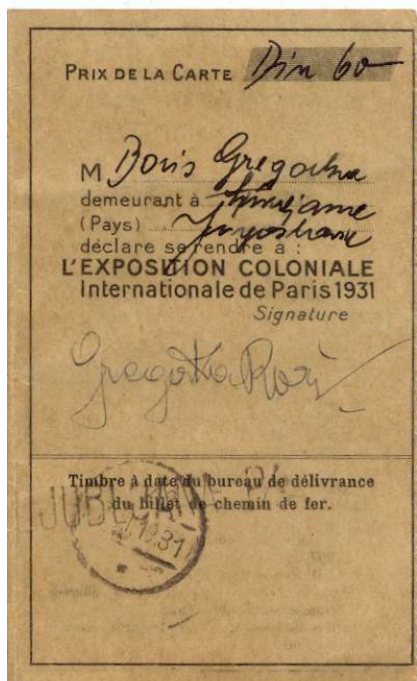 PRIX DE LA CARTE Din 60
M Boris Gregorka
demeurant à
(Pays) Jugoslavie
déclare se rendre à :
L'EXPOSITION COLONIALE
Internationale de Paris 1931
Signature
Gregorka Boris
Timbre à date du bureau de délivrance
du billet de chemin de fer.
LJUBLJANA